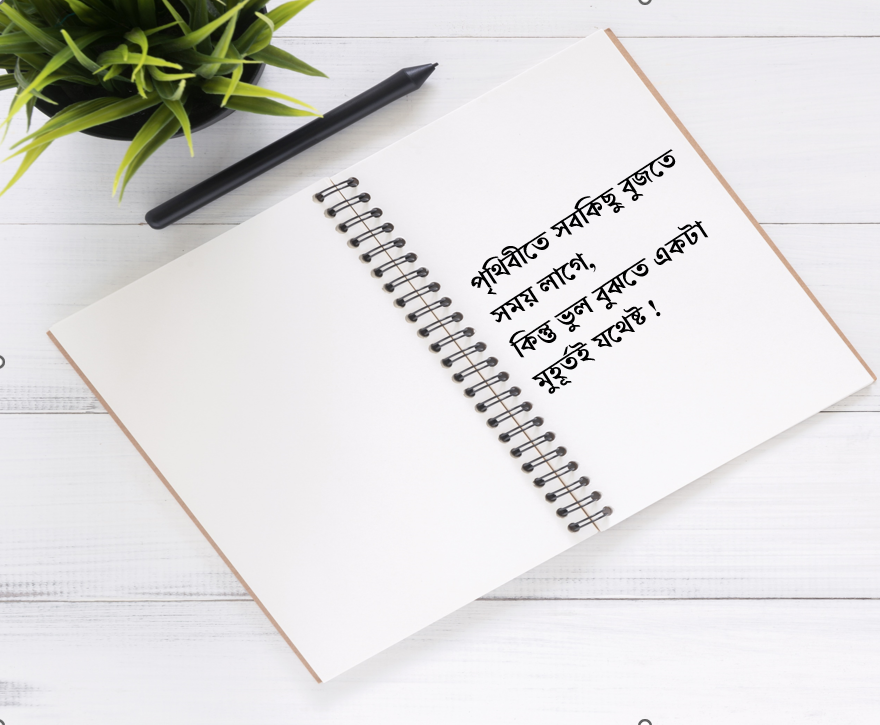 পৃথিবীতে সবকিছু বুজতে
সময় লাগে,
কিন্তু ভুল বুঝতে একটা
মুহূর্তই যথেষ্ট !